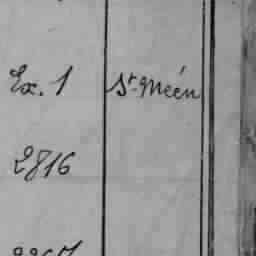 Ex. 1 St-Méen
2816